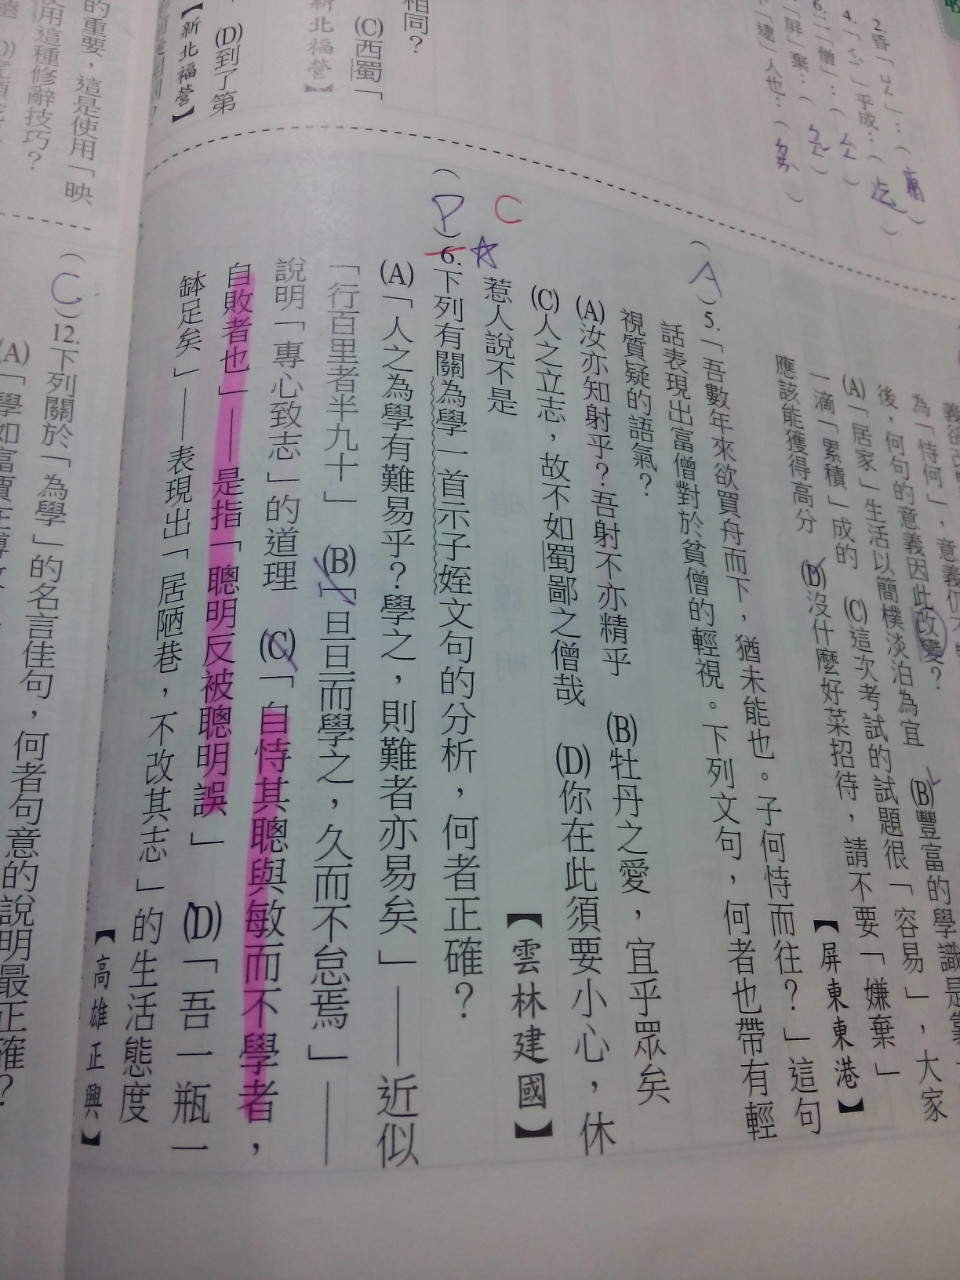 2.昏「ㄓㄨ」：（庸）
4.「ㄙ」乎成：（迄）
6.二「僧」：（ㄙ）
「屏」棄：（）
「逮」人也：（）
為「恃何」，意義仍
後，何句的意義因此改變？
(A)「居家」生活以簡樸淡泊為宜　(B)豐富的學識是靠
一滴「累積」成的　(C)這次考試的試題很「容易」，大家
應該能獲得高分　(D)沒什麼好菜招待，請不要「嫌棄」
【屏東東港】
（A）5.「吾數年來欲買舟而下，猶未能也。子何恃而往？」這句
話表現出富僧對於貧僧的輕視。下列文句，何者也帶有輕
視質疑的語氣？
(A)汝亦知射乎？吾射不亦精乎　(B)牡丹之愛，宜乎眾矣
(C)人之立志，故不如蜀鄙之僧哉　(D)你在此須要小心，休
惹人說不是　【雲林建國】
C
（D）6.下列有關為學一首示子姪文句的分析，何者正確？
(A)「人之為學有難易乎？學之，則難者亦易矣」——近似
「行百里者半九十」　(B)「旦旦而學之，久而不怠焉」——
說明「專心致志」的道理　(C)「自恃其聰與敏而不學者，
自敗者也」——是指「聰明反被聰明誤」　(D)「吾一瓶一
缽足矣」——表現出「居陋巷，不改其志」的生活態度
【高雄正興】
相同？
(C)西蜀「
【新北福營】
(D)到了第
【新北福營】
的重要，這是使用「映
使用這種修辭技巧？
（C）12.下列關於「為學」的名言佳句，何者句意的說明最正確？
(A)「學如富賈在博收